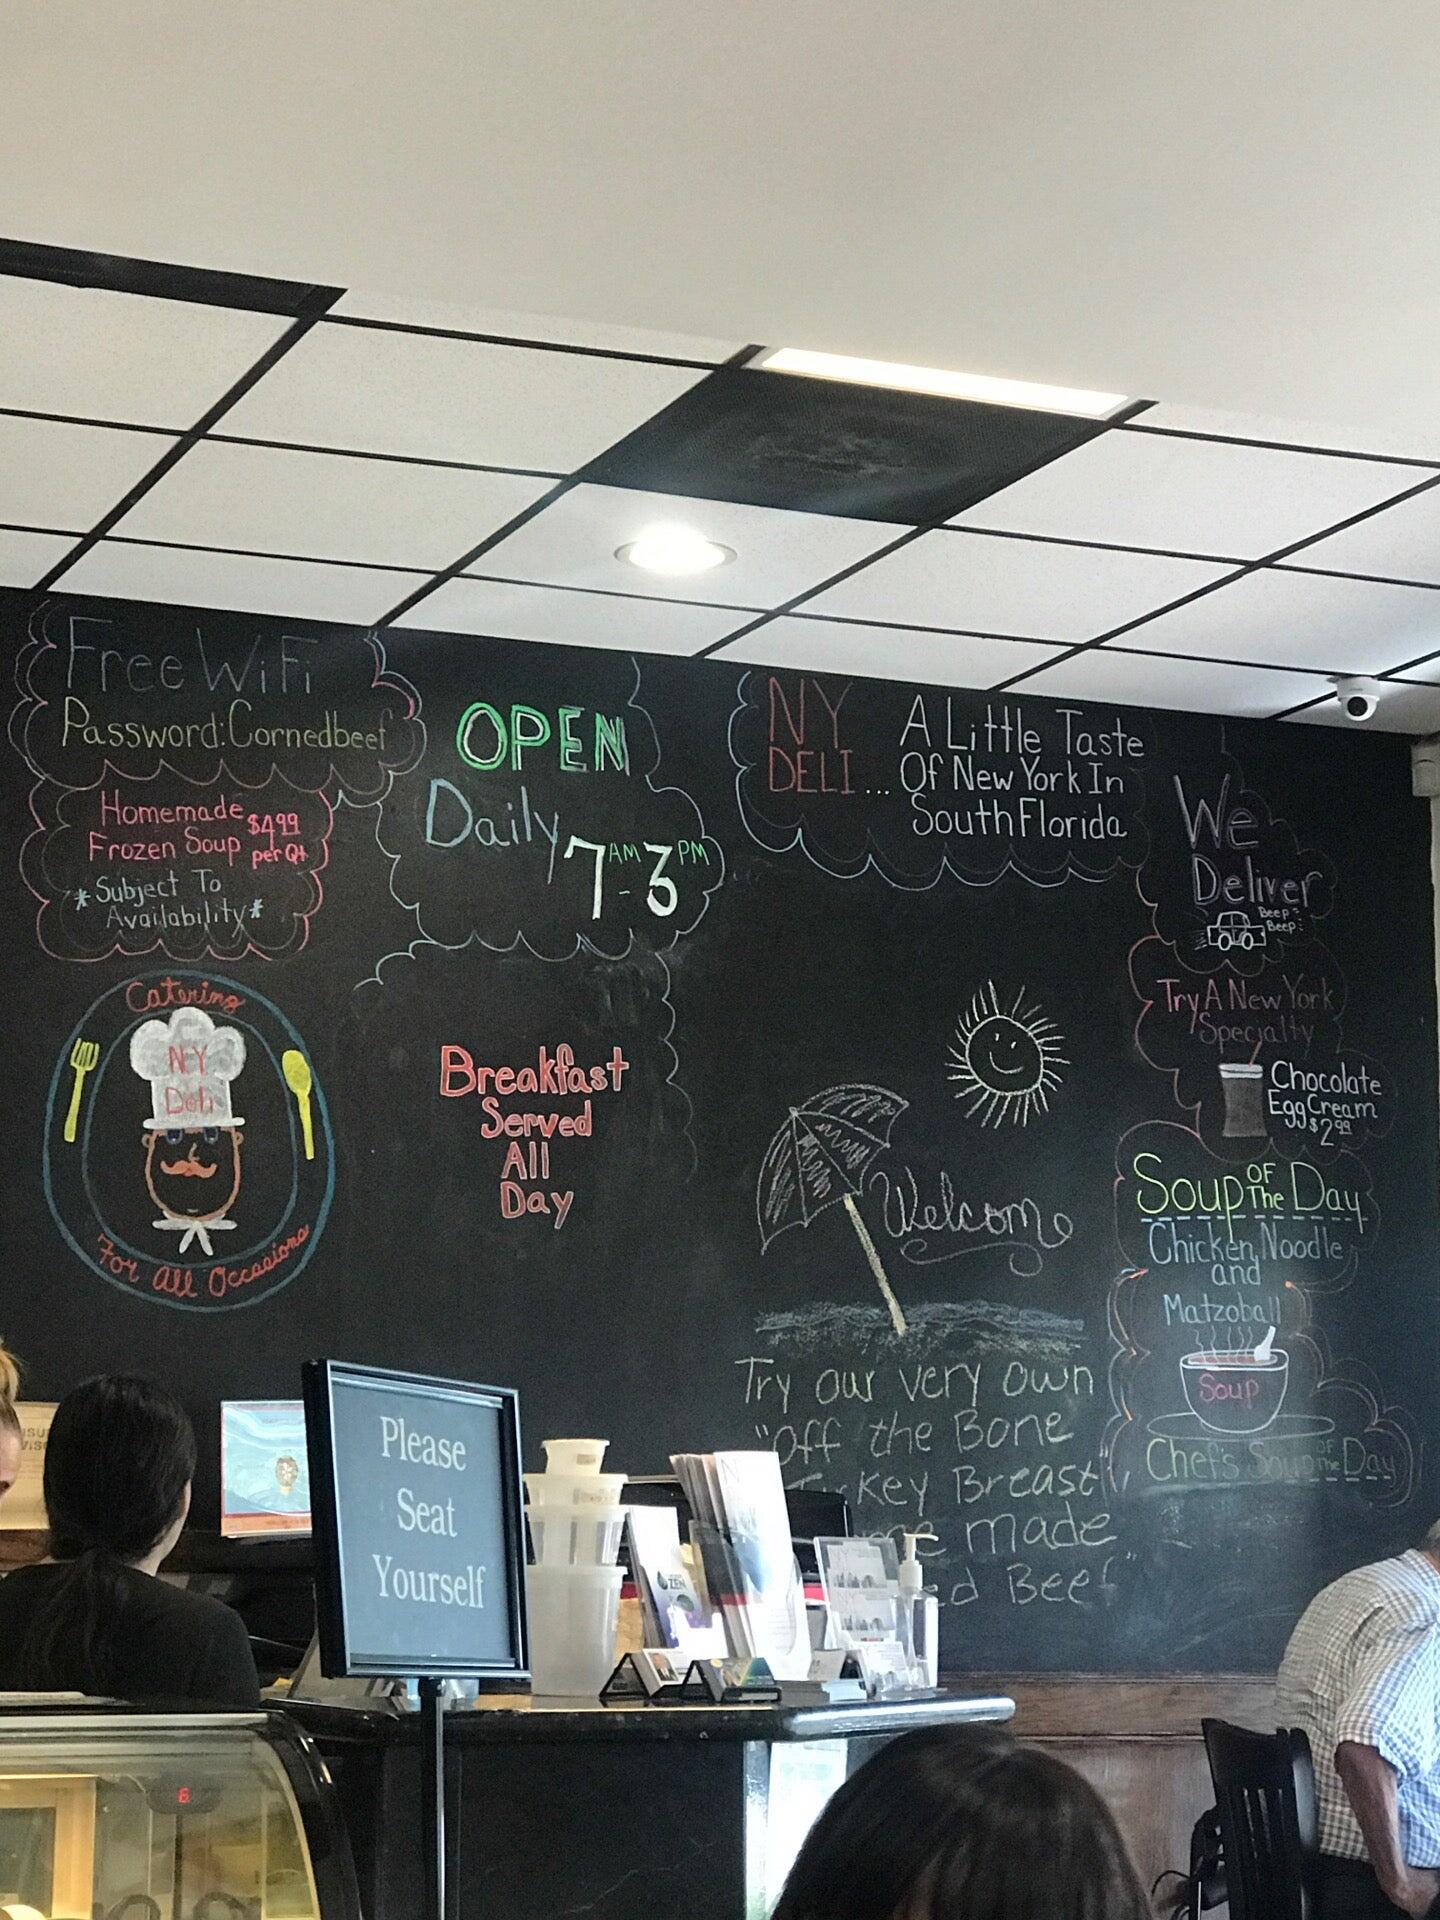 Free WiFi
Password: Cornedbeef
Homemade
Frozen Soup
$4.99
per Qt
*Subject To
Availability*
Catering
NY
Deli
For All Occasions
OPEN
Daily
7AM-3PM
Breakfast
Served
All
Day
NY
DELI...
A Little Taste
Of New York In
South Florida
Welcome
Try our very own
"Off the Bone
key Breast
made
Beef"
We
Deliver
Beep
Beep
Try A New York
Specialty
Chocolate
Egg Cream
$2.99
Soup OF The Day
Chicken Noodle
and
Matzoball
Soup
Chef's Soup OF The Day
Please
Seat
Yourself
ZEN